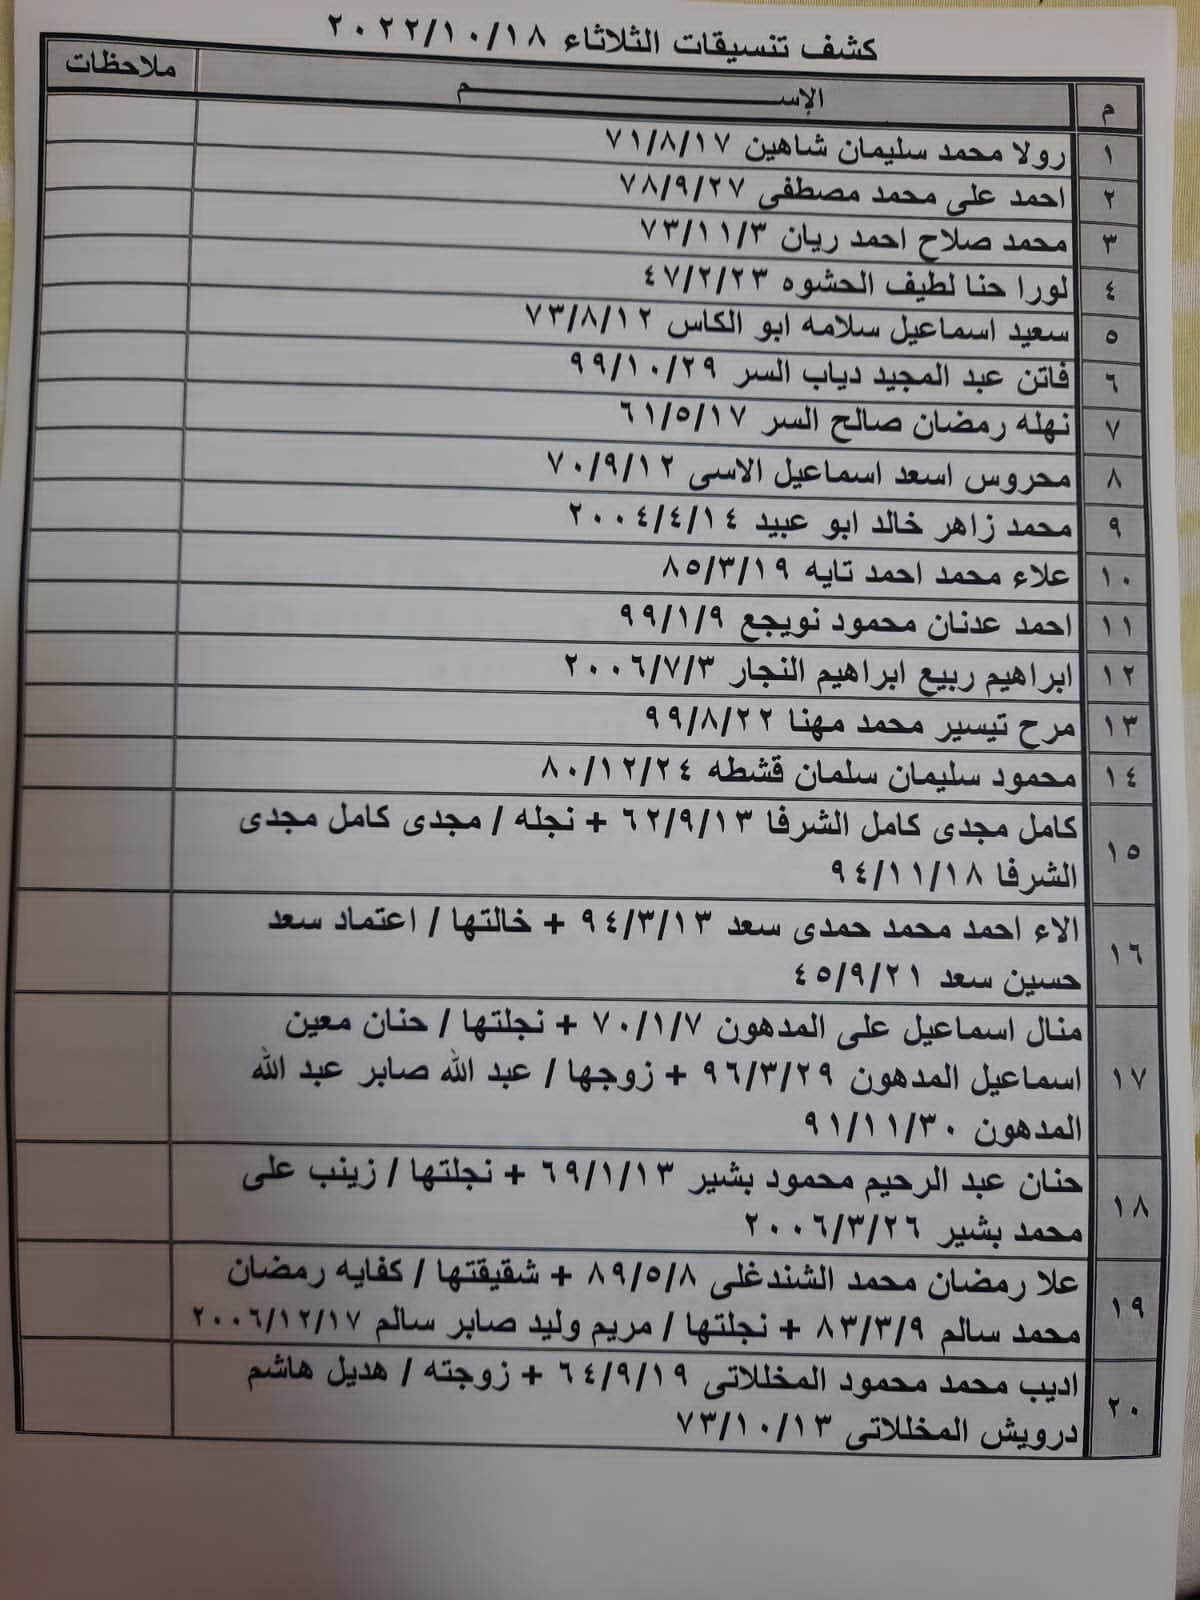 كشف تنسيقات الثلاثاء ٢٠٢٢/١٠/١٨
م الإســـــــــم ملاحظات
١ رولا محمد سليمان شاهين ٧١/٨/١٧
٢ احمد على محمد مصطفى ٧٨/٩/٢٧
٣ محمد صلاح احمد ريان ٧٣/١١/٣
٤ لورا حنا لطيف الحشوه ٤٧/٢/٢٣
٥ سعيد اسماعيل سلامه ابو الكاس ٧٣/٨/١٢
٦ فاتن عبد المجيد دياب السر ٩٩/١٠/٢٩
٧ نهله رمضان صالح السر ٦١/٥/١٧
٨ محروس اسعد اسماعيل الاسى ٧٠/٩/١٢
٩ محمد زاهر خالد ابو عبيد ٢٠٠٤/٤/١٤
١٠ علاء محمد احمد تايه ٨٥/٣/١٩
١١ احمد عدنان محمود نويجع ٩٩/١/٩
١٢ ابراهيم ربيع ابراهيم النجار ٢٠٠٦/٧/٣
١٣ مرح تيسير محمد مهنا ٩٩/٨/٢٢
١٤ محمود سليمان سلمان قشطه ٨٠/١٢/٢٤
١٥ كامل مجدى كامل الشرفا ٦٢/٩/١٣ + نجله / مجدى كامل مجدى
الشرفا ٩٤/١١/١٨
١٦ الاء احمد محمد حمدى سعد ٩٤/٣/١٣ + خالتها / اعتماد سعد
حسين سعد ٤٥/٩/٢١
١٧ منال اسماعيل على المدهون ٧٠/١/٧ + نجلتها / حنان معين
اسماعيل المدهون ٩٦/٣/٢٩ + زوجها / عبد الله صابر عبد الله
المدهون ٩١/١١/٣٠
١٨ حنان عبد الرحيم محمود بشير ٦٩/١/١٣ + نجلتها / زينب على
محمد بشير ٢٠٠٦/٣/٢٦
١٩ علا رمضان محمد الشندغلى ٨٩/٥/٨ + شقيقتها / كفايه رمضان
محمد سالم ٨٣/٣/٩ + نجلتها / مريم وليد صابر سالم ٢٠٠٦/١٢/١٧
٢٠ اديب محمد محمود المخللاتى ٦٤/٩/١٩ + زوجته / هديل هاشم
درويش المخللاتى ٧٣/١٠/١٣